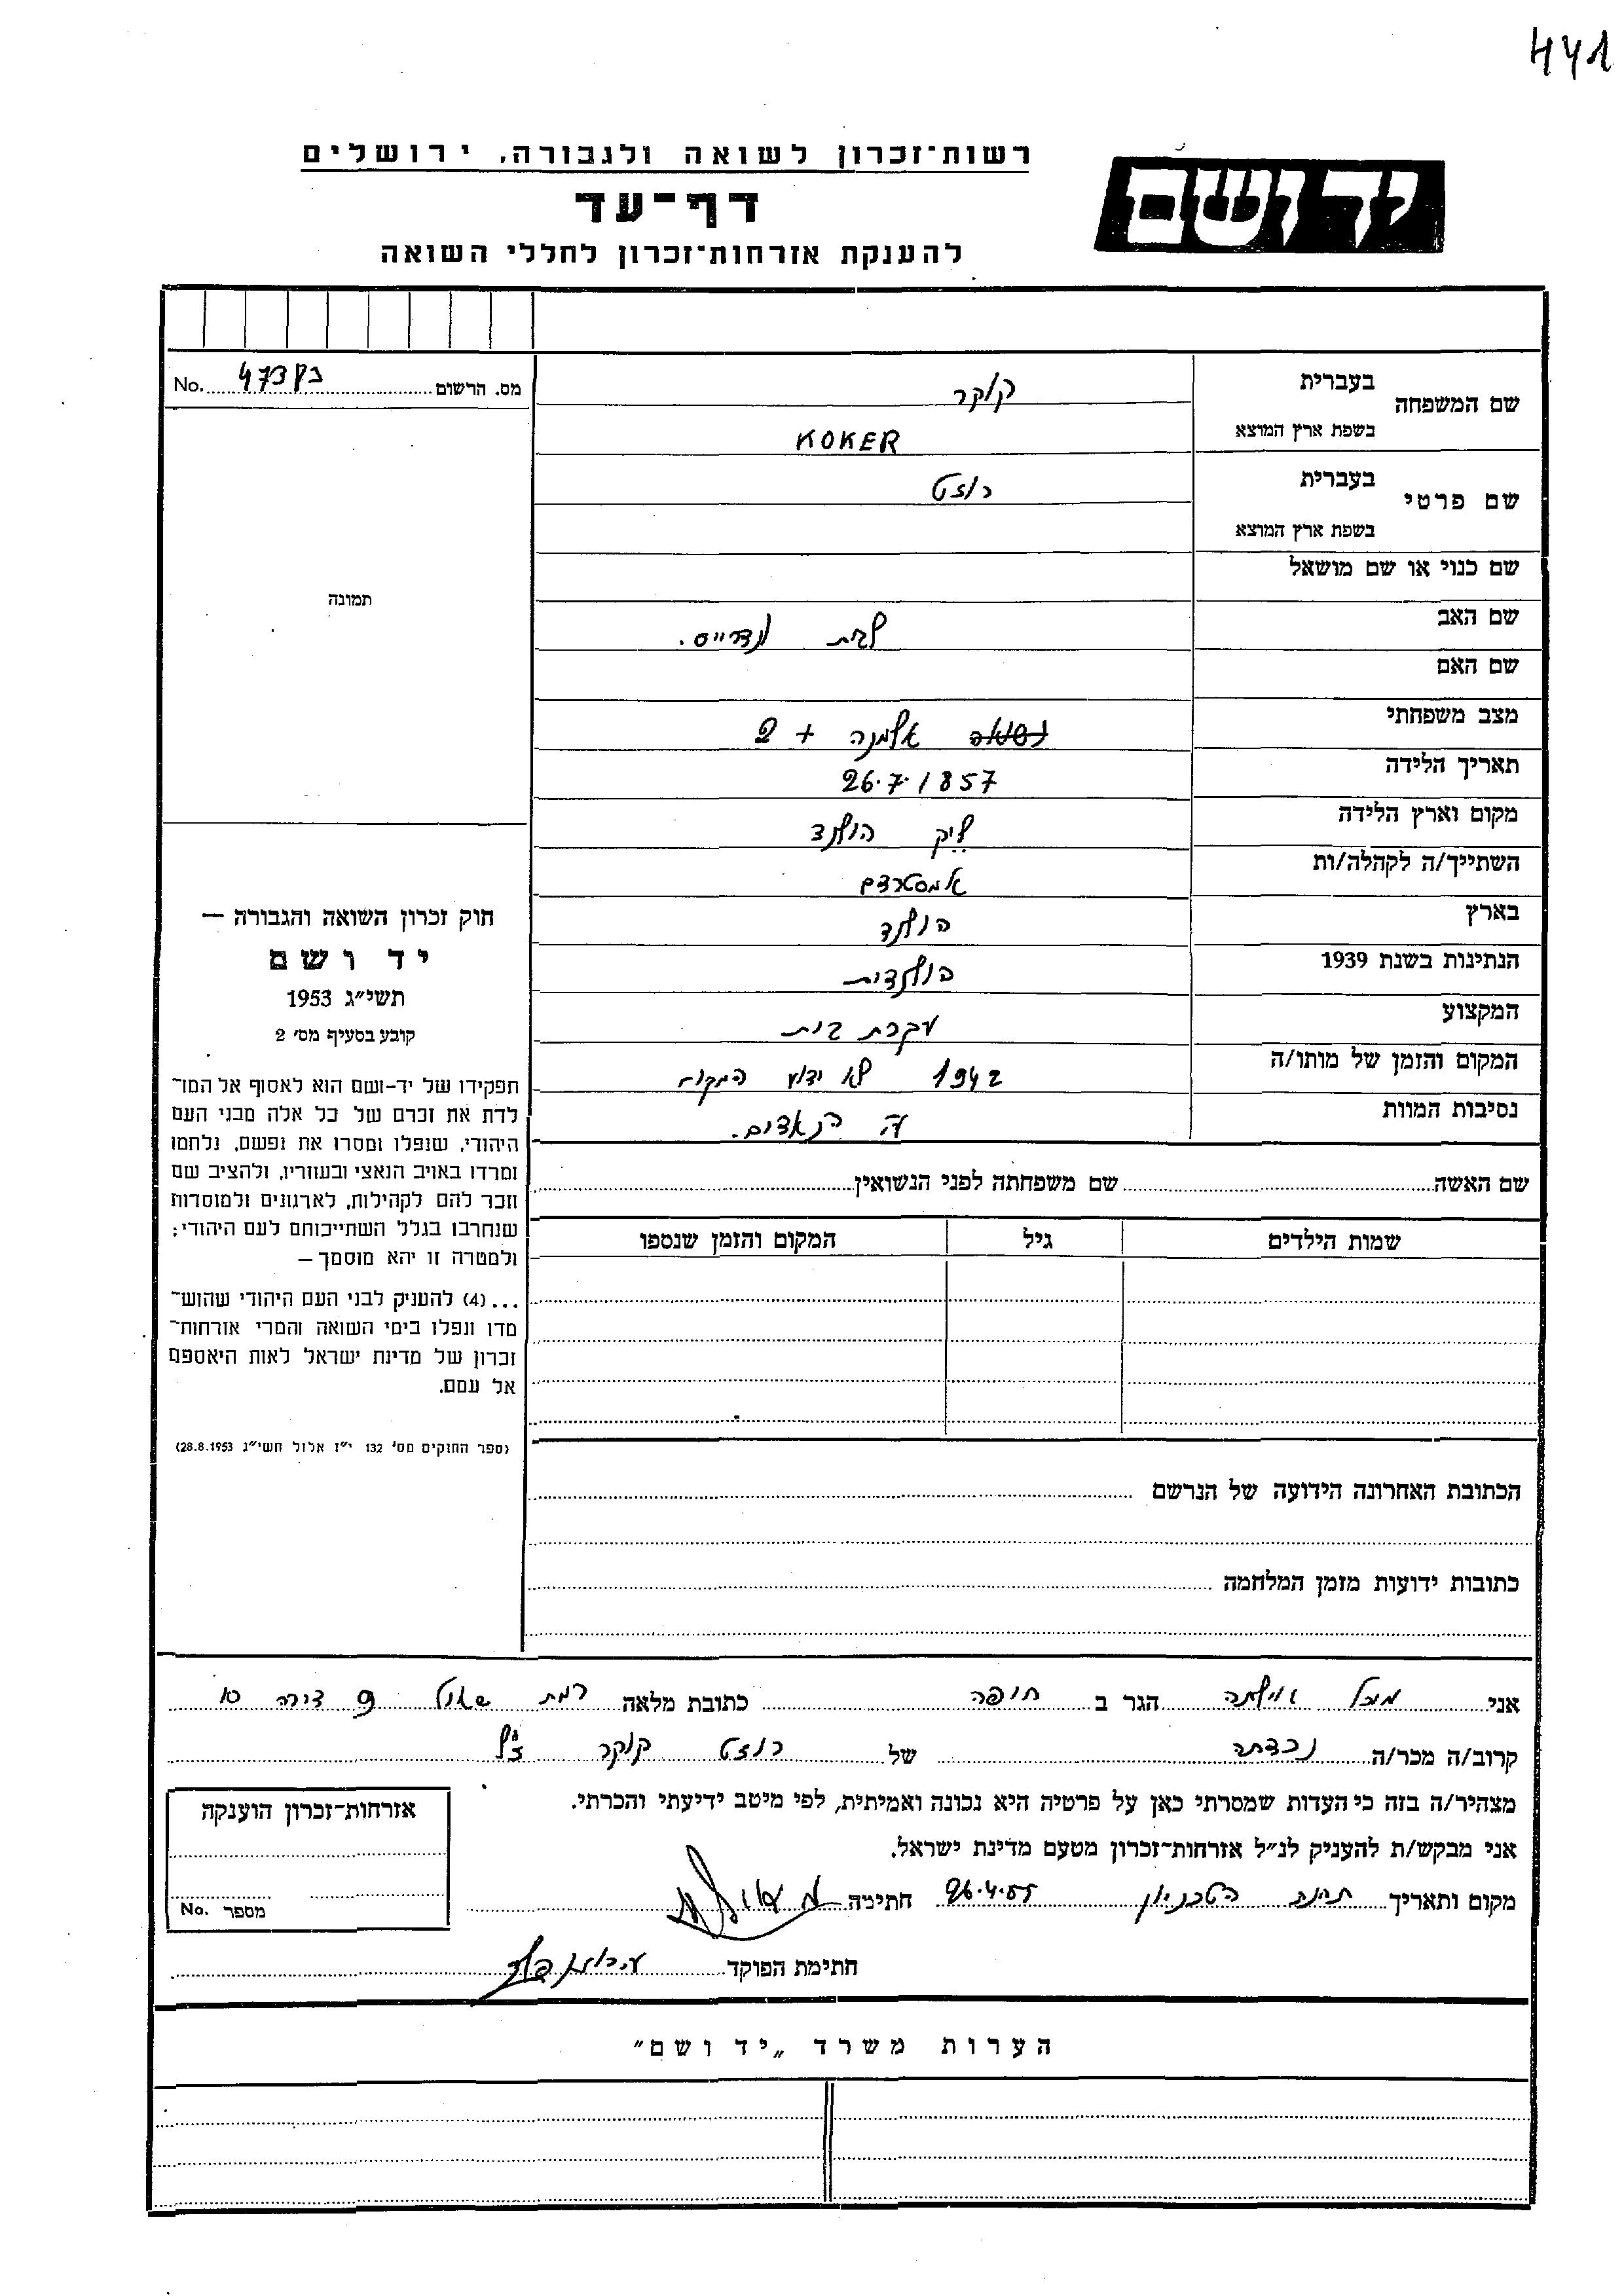 441
רשות־זכרון לשואה ולגבורה, ירושלים
יד ושם
דף־עד
להענקת אזרחות־זכרון לחללי השואה
מס. הרשום No.
שם המשפחה
בעברית
קוקר
בשפת ארץ המוצא
KOKER
שם פרטי
בעברית
רוזט
בשפת ארץ המוצא
שם כנוי או שם מושאל
תמונה
שם האב
לבית
שם האם
מצב משפחתי
נשואה אלמנה + 2
תאריך הלידה
26.7.1857
מקום וארץ הלידה
הולנד
השתייך/ה לקהלה/ות
אמסטרדם
בארץ
הולנד
הנתינות בשנת 1939
הולנדית
המקצוע
עקרת בית
המקום והזמן של מותו/ה
1942 לא ידוע המקום
נסיבות המוות
ע"י הנאצים.
חוק זכרון השואה והגבורה —
יד ושם
תשי״ג 1953
קובע בסעיף מס׳ 2
תפקידו של יד-ושם הוא לאסוף אל המו־
לדת את זכרם של כל אלה מבני העם
היהודי, שנפלו ומסרו את נפשם, נלחמו
ומרדו באויב הנאצי ובעוזריו, ולהציב שם
וזכר להם לקהילות, לארגונים ולמוסדות
שנחרבו בגלל השתייכותם לעם היהודי;
ולמטרה זו יהא מוסמך —
...(4) להעניק לבני העם היהודי שהוש־
מדו ונפלו בימי השואה והמרי אזרחות־
זכרון של מדינת ישראל לאות היאספם
אל עמם.
(ספר החוקים מס׳ 132 י״ז אלול תשי״ג 28.8.1953)
שם האשה שם משפחתה לפני הנשואין
שמות הילדים גיל המקום והזמן שנספו
הכתובת האחרונה הידועה של הנרשם
כתובות ידועות מזמן המלחמה
אני הגר ב חיפה כתובת מלאה רמת שאול 9 דירה 10
קרוב/ה מכר/ה נכדתה של רוזט קוקר ז"ל
מצהיר/ה בזה כי העדות שמסרתי כאן על פרטיה היא נכונה ואמיתית, לפי מיטב ידיעתי והכרתי.
אני מבקש/ת להעניק לנ״ל אזרחות־זכרון מטעם מדינת ישראל.
מקום ותאריך הטכניון חתימה
חתימת הפוקד
אזרחות־זכרון הוענקה
מספר No.
הערות משרד „יד ושם״